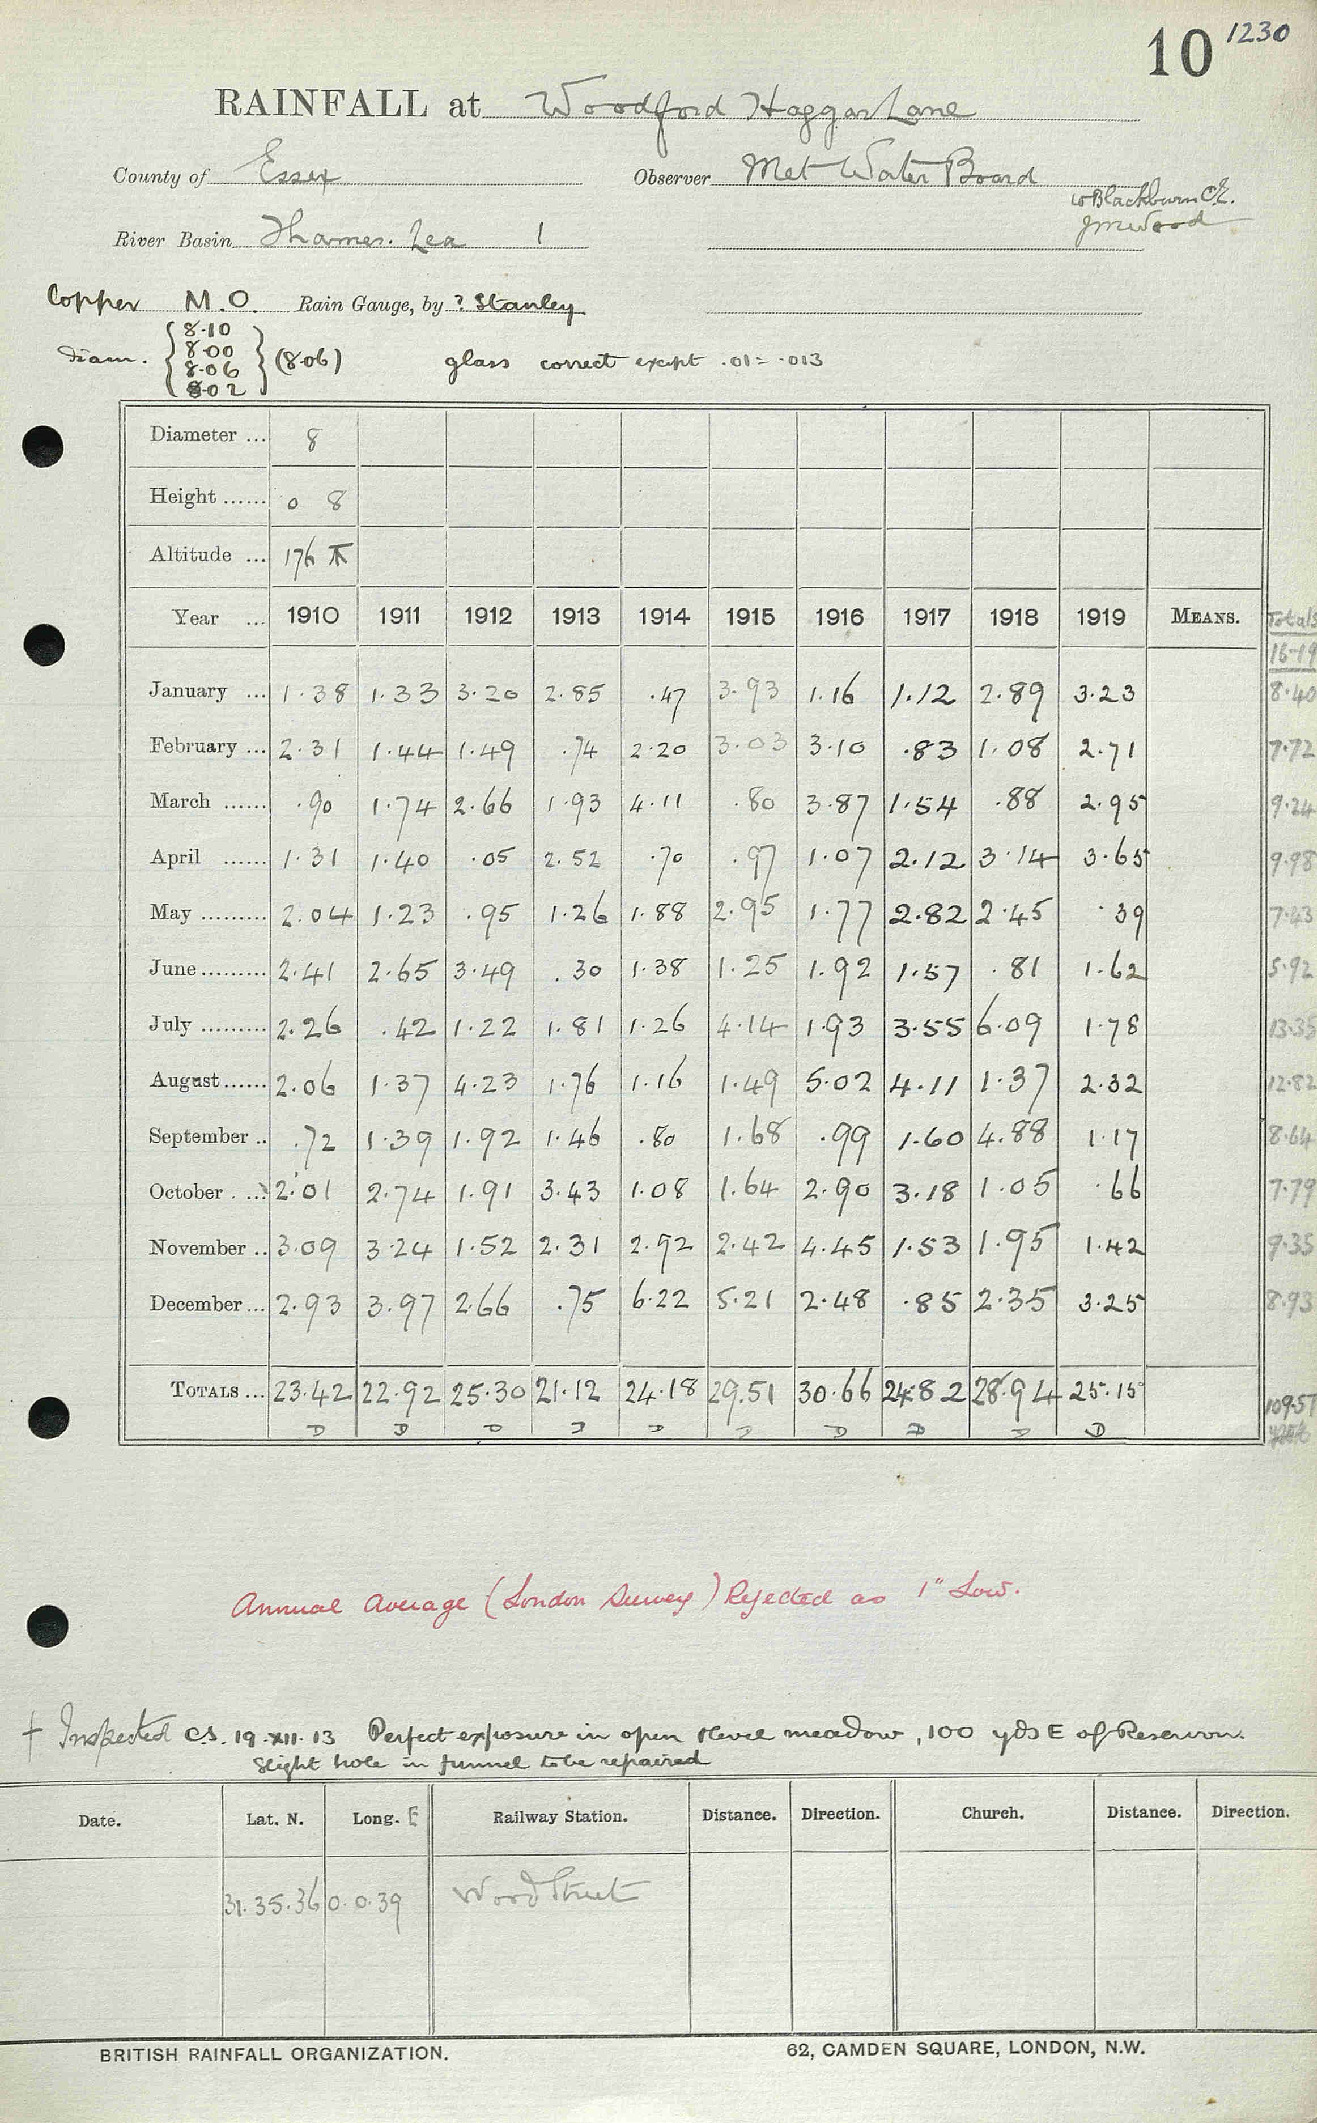 10 1230
RAINFALL at Woodford Haggar Lane
County of Essex Observer Met Water Board
W Blackburn C.E.
River Basin Thames. Lea 1 JMWood
Copper M.O. Rain Gauge, by ? Stanley
8.10
8.00
diam. (8.06) glass correct except .01 = .013
8.06
8.02
Diameter ... 8
Height ...... 0 8
Altitude ... 176
Year ... 1910 1911 1912 1913 1914 1915 1916 1917 1918 1919 MEANS. Totals
16-19
January ... 1.38 1.33 3.20 2.85 .47 3.93 1.16 1.12 2.89 3.23 8.40
February ... 2.31 1.44 1.49 .74 2.20 3.03 3.10 .83 1.08 2.71 7.72
March ...... .90 1.74 2.66 1.93 4.11 .80 3.87 1.54 .88 2.95 9.24
April ...... 1.31 1.40 .05 2.52 .70 .97 1.07 2.12 3.14 3.65 9.98
May ......... 2.04 1.23 .95 1.26 1.88 2.95 1.77 2.82 2.45 .39 7.43
June ......... 2.41 2.65 3.49 .30 1.38 1.25 1.92 1.57 .81 1.62 5.92
July ......... 2.26 .42 1.22 1.81 1.26 4.14 1.93 3.55 6.09 1.78 13.35
August ...... 2.06 1.37 4.23 1.76 1.16 1.49 5.02 4.11 1.37 2.32 12.82
September .. .72 1.39 1.92 1.46 .80 1.68 .99 1.60 4.88 1.17 8.64
October . ... 2.01 2.74 1.91 3.43 1.08 1.64 2.90 3.18 1.05 .66 7.79
November .. 3.09 3.24 1.52 2.31 2.92 2.42 4.45 1.53 1.95 1.42 9.35
December ... 2.93 3.97 2.66 .75 6.22 5.21 2.48 .85 2.35 3.25 8.93
TOTALS ... 23.42 22.92 25.30 21.12 24.18 29.51 30.66 24.82 28.94 25.15 109.57
D D D D D D D D D D
Annual Average (London Survey) Rejected as 1" Low.
† Inspected C.S. 19.XII.13 Perfect exposure in open level meadow, 100 yds E of Reservoir.
Slight hole in funnel to be repaired
Date. Lat. N. Long. E Railway Station. Distance. Direction. Church. Distance. Direction.
31.35.36 0.0.39 Wood Street
BRITISH RAINFALL ORGANIZATION. 62, CAMDEN SQUARE, LONDON, N.W.